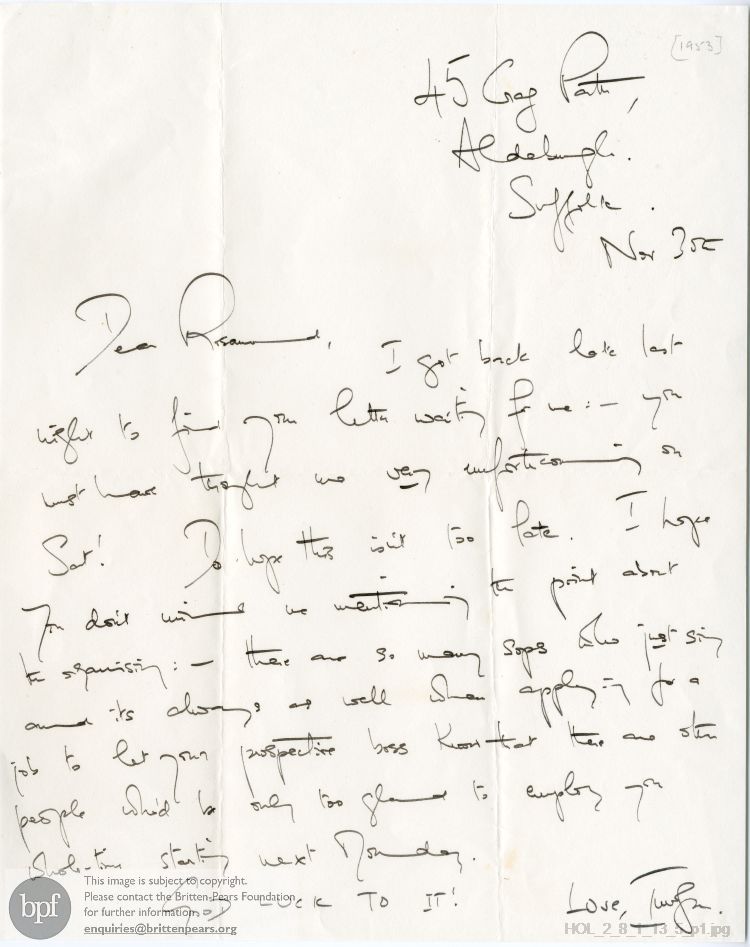 [1953]
45 Crag Path,
Aldeburgh.
Suffolk.
Nov 30th
Dear Rosamund, I got back late last
night to find your letter waiting for me :- you
must have thought me very unforthcoming on
Sat! Do hope this isn't too late. I hope
you don't mind me mentioning the point about
the organising :- there are so many sops who just sing
and it's always as well when applying for a
job to let your prospective boss know that there are other
people who'd be only too glad to employ you
whole-time starting next Monday.
GOOD LUCK TO IT! Love, Imogen.
bpf
This image is subject to copyright.
Please contact the Britten-Pears Foundation
for further information
enquiries@brittenpears.org
HOL_2_8_1_13_5_p1.jpg